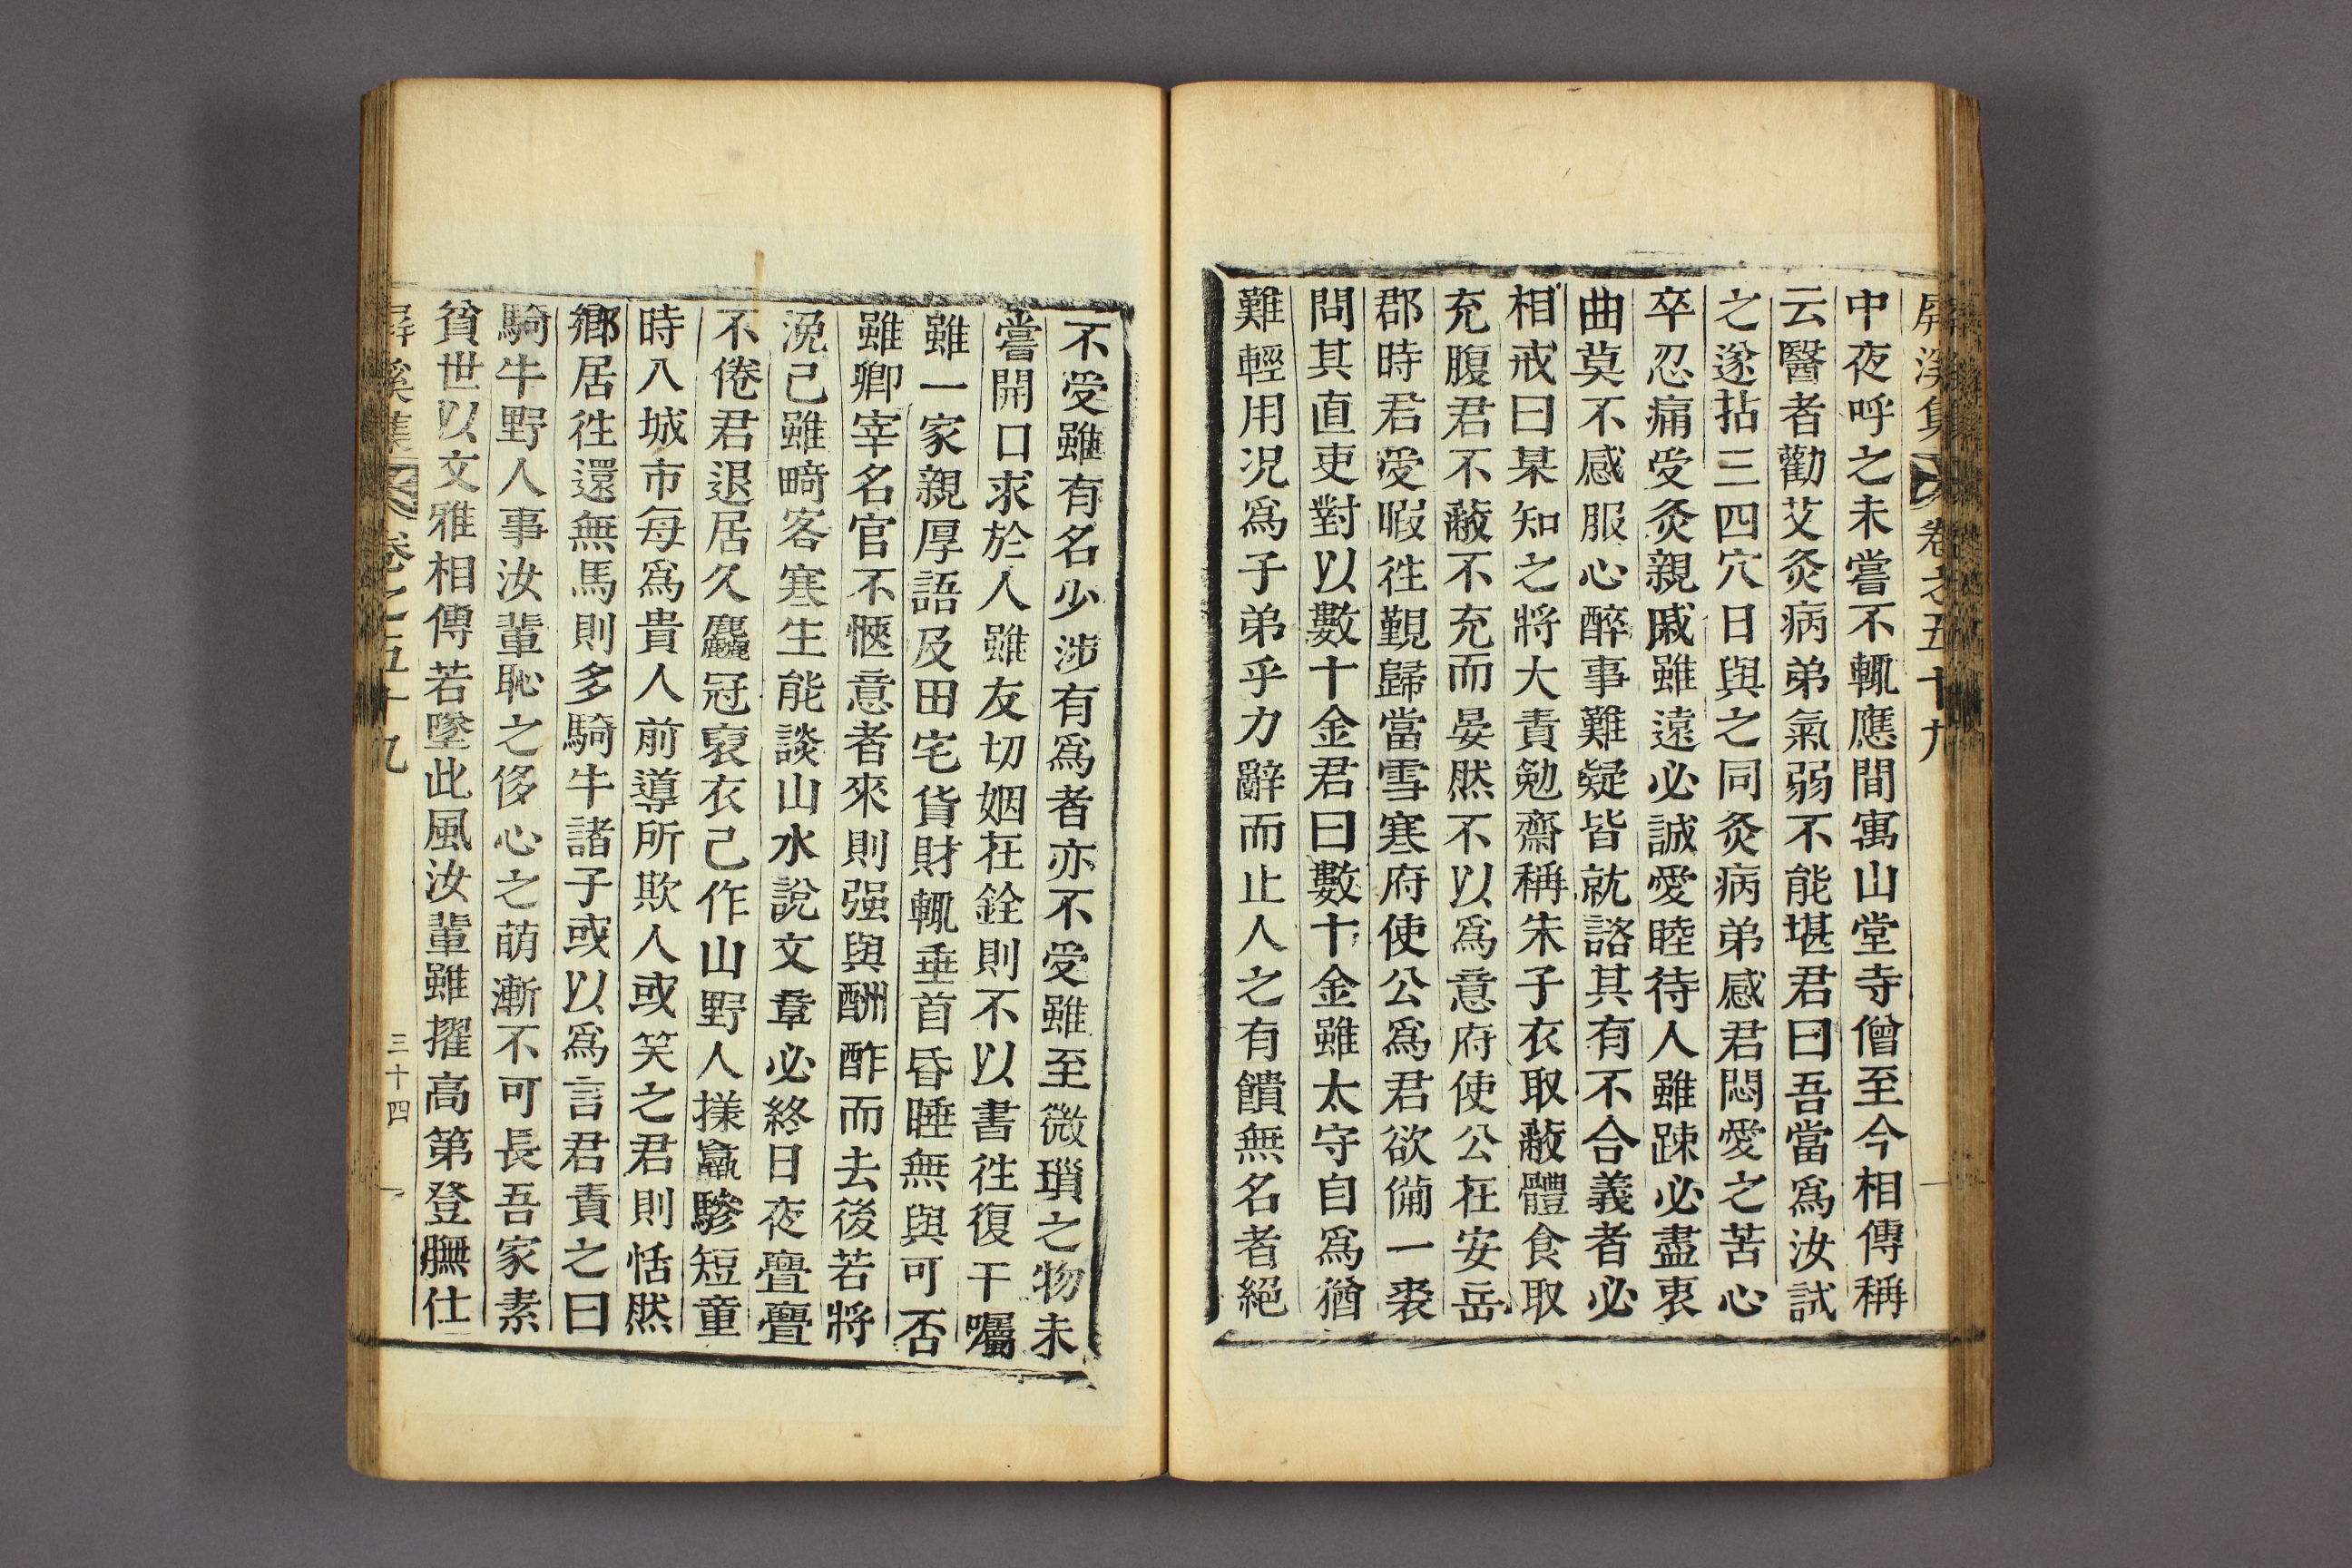 屛溪集 卷之五十九
中夜呼之未嘗不輒應間寓山堂寺僧至今相傳稱
云醫者勸艾灸病弟氣弱不能堪君曰吾當爲汝試
之遂拈三四穴日與之同灸病弟感君悶愛之苦心
卒忍痛受灸親戚雖遠必誠愛睦待人雖踈必盡衷
曲莫不感服心醉事難疑皆就諮其有不合義者必
相戒曰某知之將大責勉齋稱朱子衣取蔽體食取
充腹君不蔽不充而晏然不以爲意府使公在安岳
郡時君受暇徃覲歸當雪寒府使公爲君欲備一裘
問其直吏對以數十金君曰數十金雖太守自爲猶
難輕用况爲子弟乎力辭而止人之有饋無名者絕
不受雖有名少涉有爲者亦不受雖至微瑣之物未
嘗開口求於人雖友切姻在銓則不以書徃復干囑
雖一家親厚語及田宅貨財輒垂首昏睡無與可否
雖卿宰名官不愜意者來則强與酬酢而去後若將
浼己雖畸客寒生能談山水說文章必終日夜亹亹
不倦君退居久麤冠裒衣己作山野人㨾羸驂短童
時入城市每爲貴人前導所欺人或笑之君則恬然
鄕居徃還無馬則多騎牛諸子或以爲言君責之曰
騎牛野人事汝輩恥之侈心之萌漸不可長吾家素
貧世以文雅相傳若墜此風汝輩雖擢高第登膴仕
屛溪集 卷之五十九 三十四